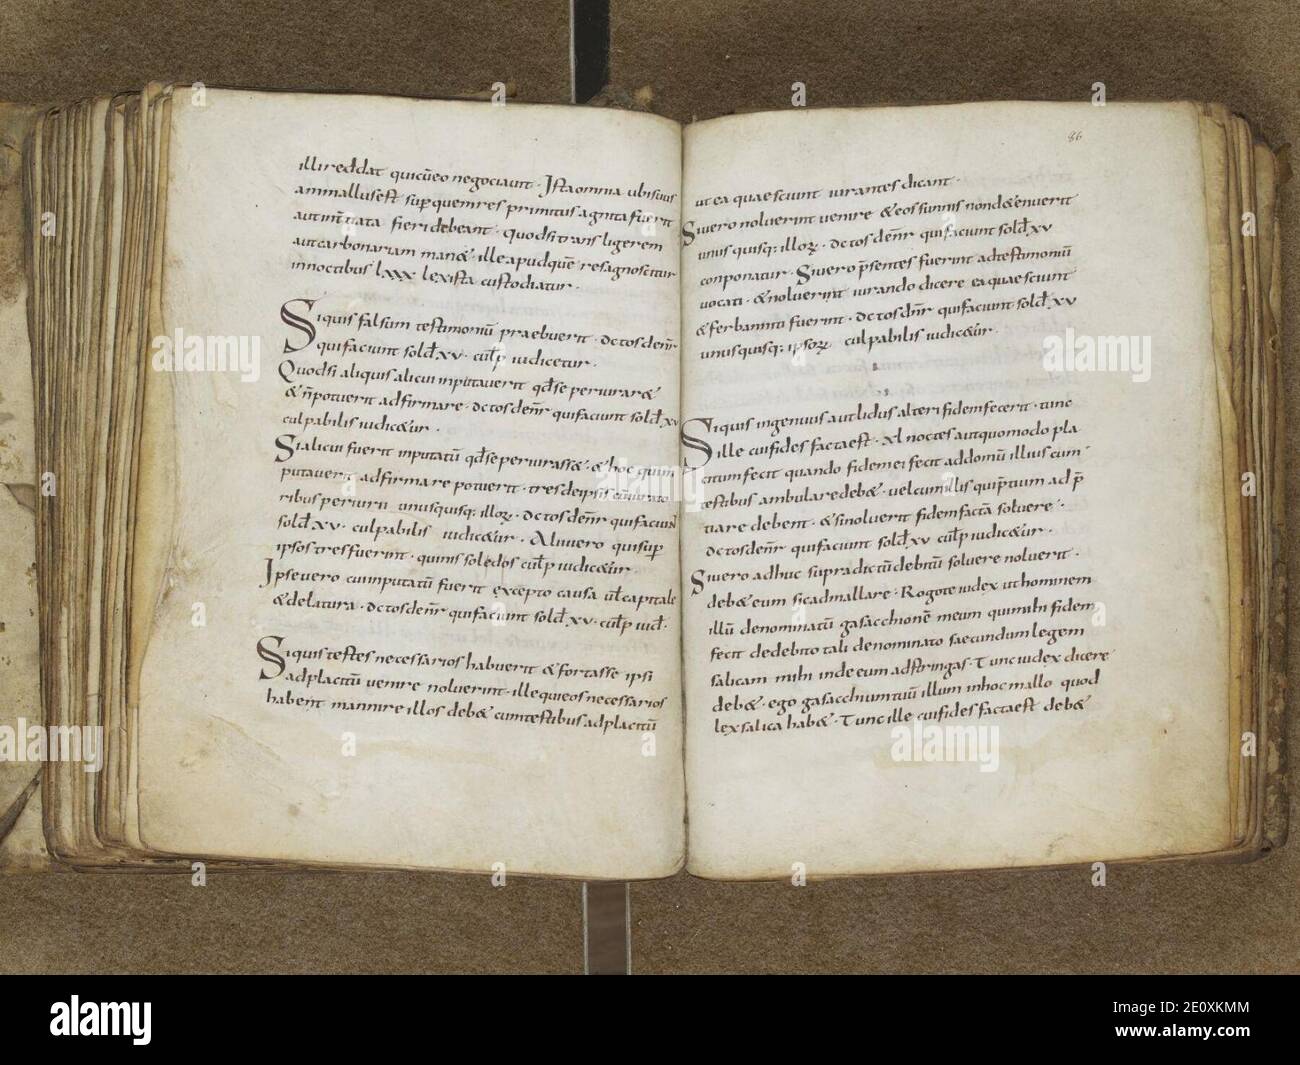 illi reddat qui cū eo negociavit · Ista omnia ubi suus
animallus est sup quem res primitus agnita fuerit
aut int̄tiata fieri debeant · quod si trans ligerem
aut carbonariam man& · ille apud quē res agnoscitur
in noctibus lxxx lex ista custodiatur ·
Siquis falsum testimoniū praebuerit · dc tos den̄r
qui faciunt sold̄ xv · cul̄p iudicetur ·
Quodsi aliquis alicui inputaverit qd̄ se periurar&
& n̄ potuerit adfirmare · dc tos den̄r qui faciunt sold̄ xv
culpabilis iudic&ur ·
Si alicui fuerit inputatū qd̄ se periurass& · & hoc qui in
putaverit adfirmare potuerit · tres de ipsis cūiurato
ribus periurii unusquisq; illoꝝ · dc tos den̄r qui faciunt
sold̄ xv · culpabilis iudic&ur · Alii vero qui sup
ipsos tres fuerint · quinis solidos cul̄p iudic&ur ·
Ipse vero cui inputatū fuerit excepto causa ul̄ capitale
& delatura · dc tos den̄r qui faciunt sold̄ xv · cul̄p iud̄ ·
Siquis testes necessarios habuerit & fortasse ipsi
ad placitū venire noluerint · ille qui eos necessarios
habent mannire illos deb& cum testibus ad placitū
86
ut ea quae sciunt iurantes dicant ·
Si vero noluerint venire & eos sunnis non d&enuerit
unusquisq; illoꝝ · dc tos den̄r qui faciunt sold̄ xv
conponatur · Si vero p̄sentes fuerint ad testimoniū
vocati · & noluerint iurando dicere ea quae sciunt
& ferbanniti fuerint · dc tos den̄r qui faciunt sold̄ xv
unusquisq; ipsoꝝ culpabilis iudic&ur ·
Siquis ingenuus aut lidus alteri fidem fecerit · tunc
ille cui fides facta est · xl noctes aut quomodo pla
citum fecit quando fidem ei fecit ad domū illius cum
testibus ambulare deb& · vel cum illis qui p̄tium ad p̄
tiare debent · & si noluerit fidem factā solvere ·
dc tos den̄r qui faciunt sold̄ xv cul̄p iudic&ur ·
Si vero adhuc supradictū debitū solvere noluerit ·
deb& eum sic admallare · Rogo te iudex ut hominem
illū denominatū gasacchionē meum qui mihi fidem
fecit de debito tali denominato saecundum legem
salicam mihi inde eum adstringas · Tunc iudex dicere
deb& · ego gasacchium tuū illum in hoc mallo quod
lex salica hab& · Tunc ille cui fides facta est deb&
a alamy
alamy
Image ID: 2E0XKMM
www.alamy.com